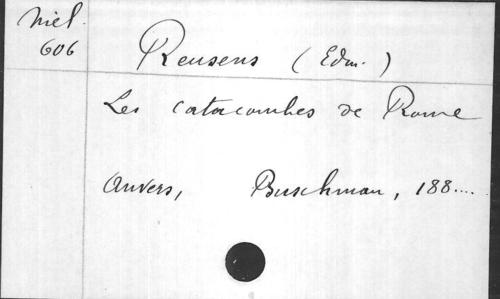 Niel.
606
Reusens (Edm.)
Les catacombes de Rome
Anvers, Buschman, 188....